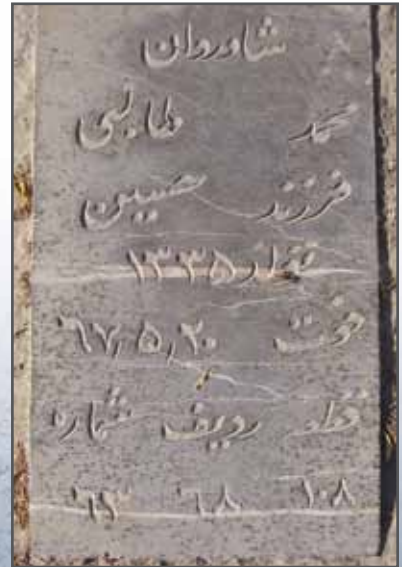 شادروان
محمد طالبی
فرزند حسین
متولد ۱۳۳۵
فوت ۶۷٫۵٫۲۰
قطعه ردیف شماره
۱۰۸ ۶۸ ۶۳